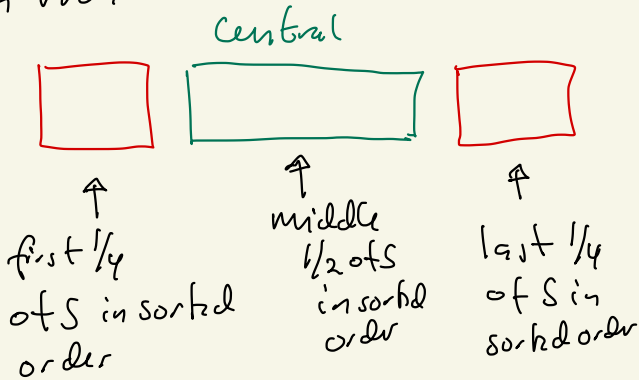 Central
first 1/4
of S in sorted
order
middle
1/2 of S
in sorted
order
last 1/4
of S in
sorted order